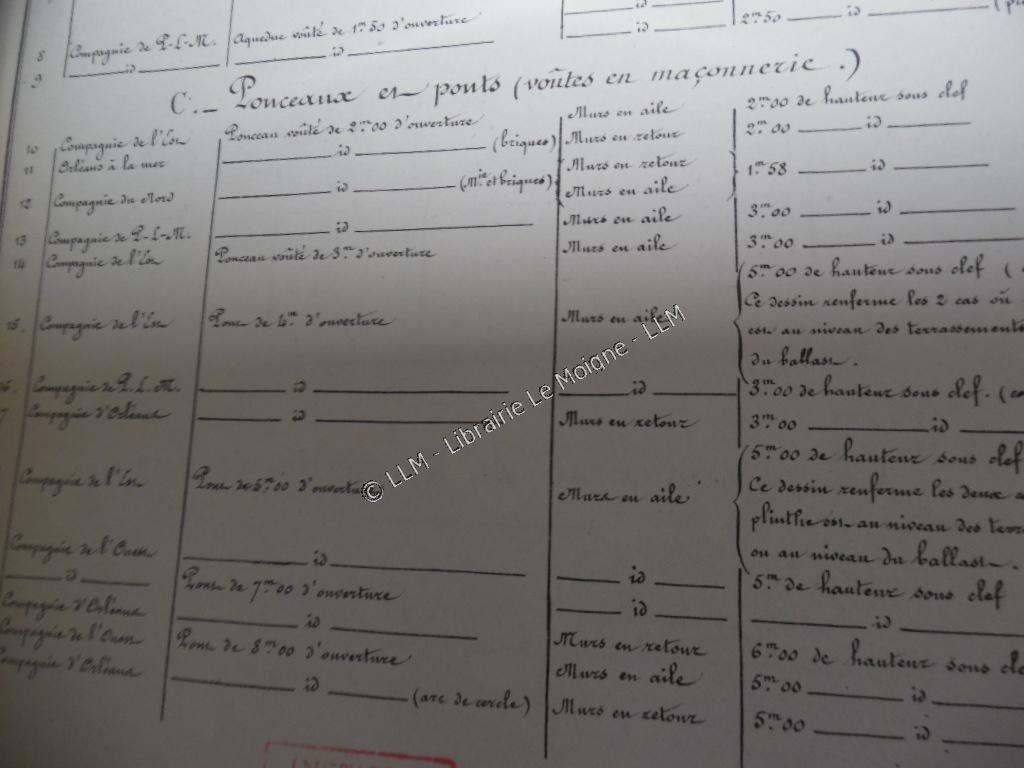 id
id 2m50 id
8 Compagnie de P-L-M. Aqueduc voûté de 1m50 d'ouverture
9 id id
C._ Ponceaux et ponts (voûtes en maçonnerie.)
10 Compagnie de l'Est Ponceau voûté de 2m00 d'ouverture Murs en aile 2m00 de hauteur sous clef
11 Orléans à la mer id (briques) Murs en retour 2m00 id
12 Compagnie du Nord id (Mie et briques) Murs en retour 1m58 id
Murs en aile
13 Compagnie de P-L-M. id Murs en aile 3m00 id
14 Compagnie de l'Est Ponceau voûté de 3m d'ouverture Murs en aile 3m00 id
5m00 de hauteur sous clef (
Ce dessin renferme les 2 cas où
15. Compagnie de l'Est Pont de 4m d'ouverture Murs en aile est au niveau des terrassements
du ballast.
16. Compagnie de P.L.M. id id 3m00 de hauteur sous clef.
7 Compagnie d'Orléans id Murs en retour 3m00 id
5m00 de hauteur sous clef
Compagnie de l'Est Pont de 5m00 d'ouverture Murs en aile Ce dessin renferme les deux
plinthe est au niveau des
ou au niveau du ballast.
Compagnie de l'Ouest id id 5m de hauteur sous clef
id Pont de 7m00 d'ouverture id id
Compagnie d'Orléans id Murs en retour 6m00 de hauteur sous
Compagnie de l'Ouest Pont de 8m00 d'ouverture Murs en aile 5m00 id
Compagnie d'Orléans id (arc de cercle) Murs en retour 5m00 id
© LLM - Librairie Le Moigne - LLM